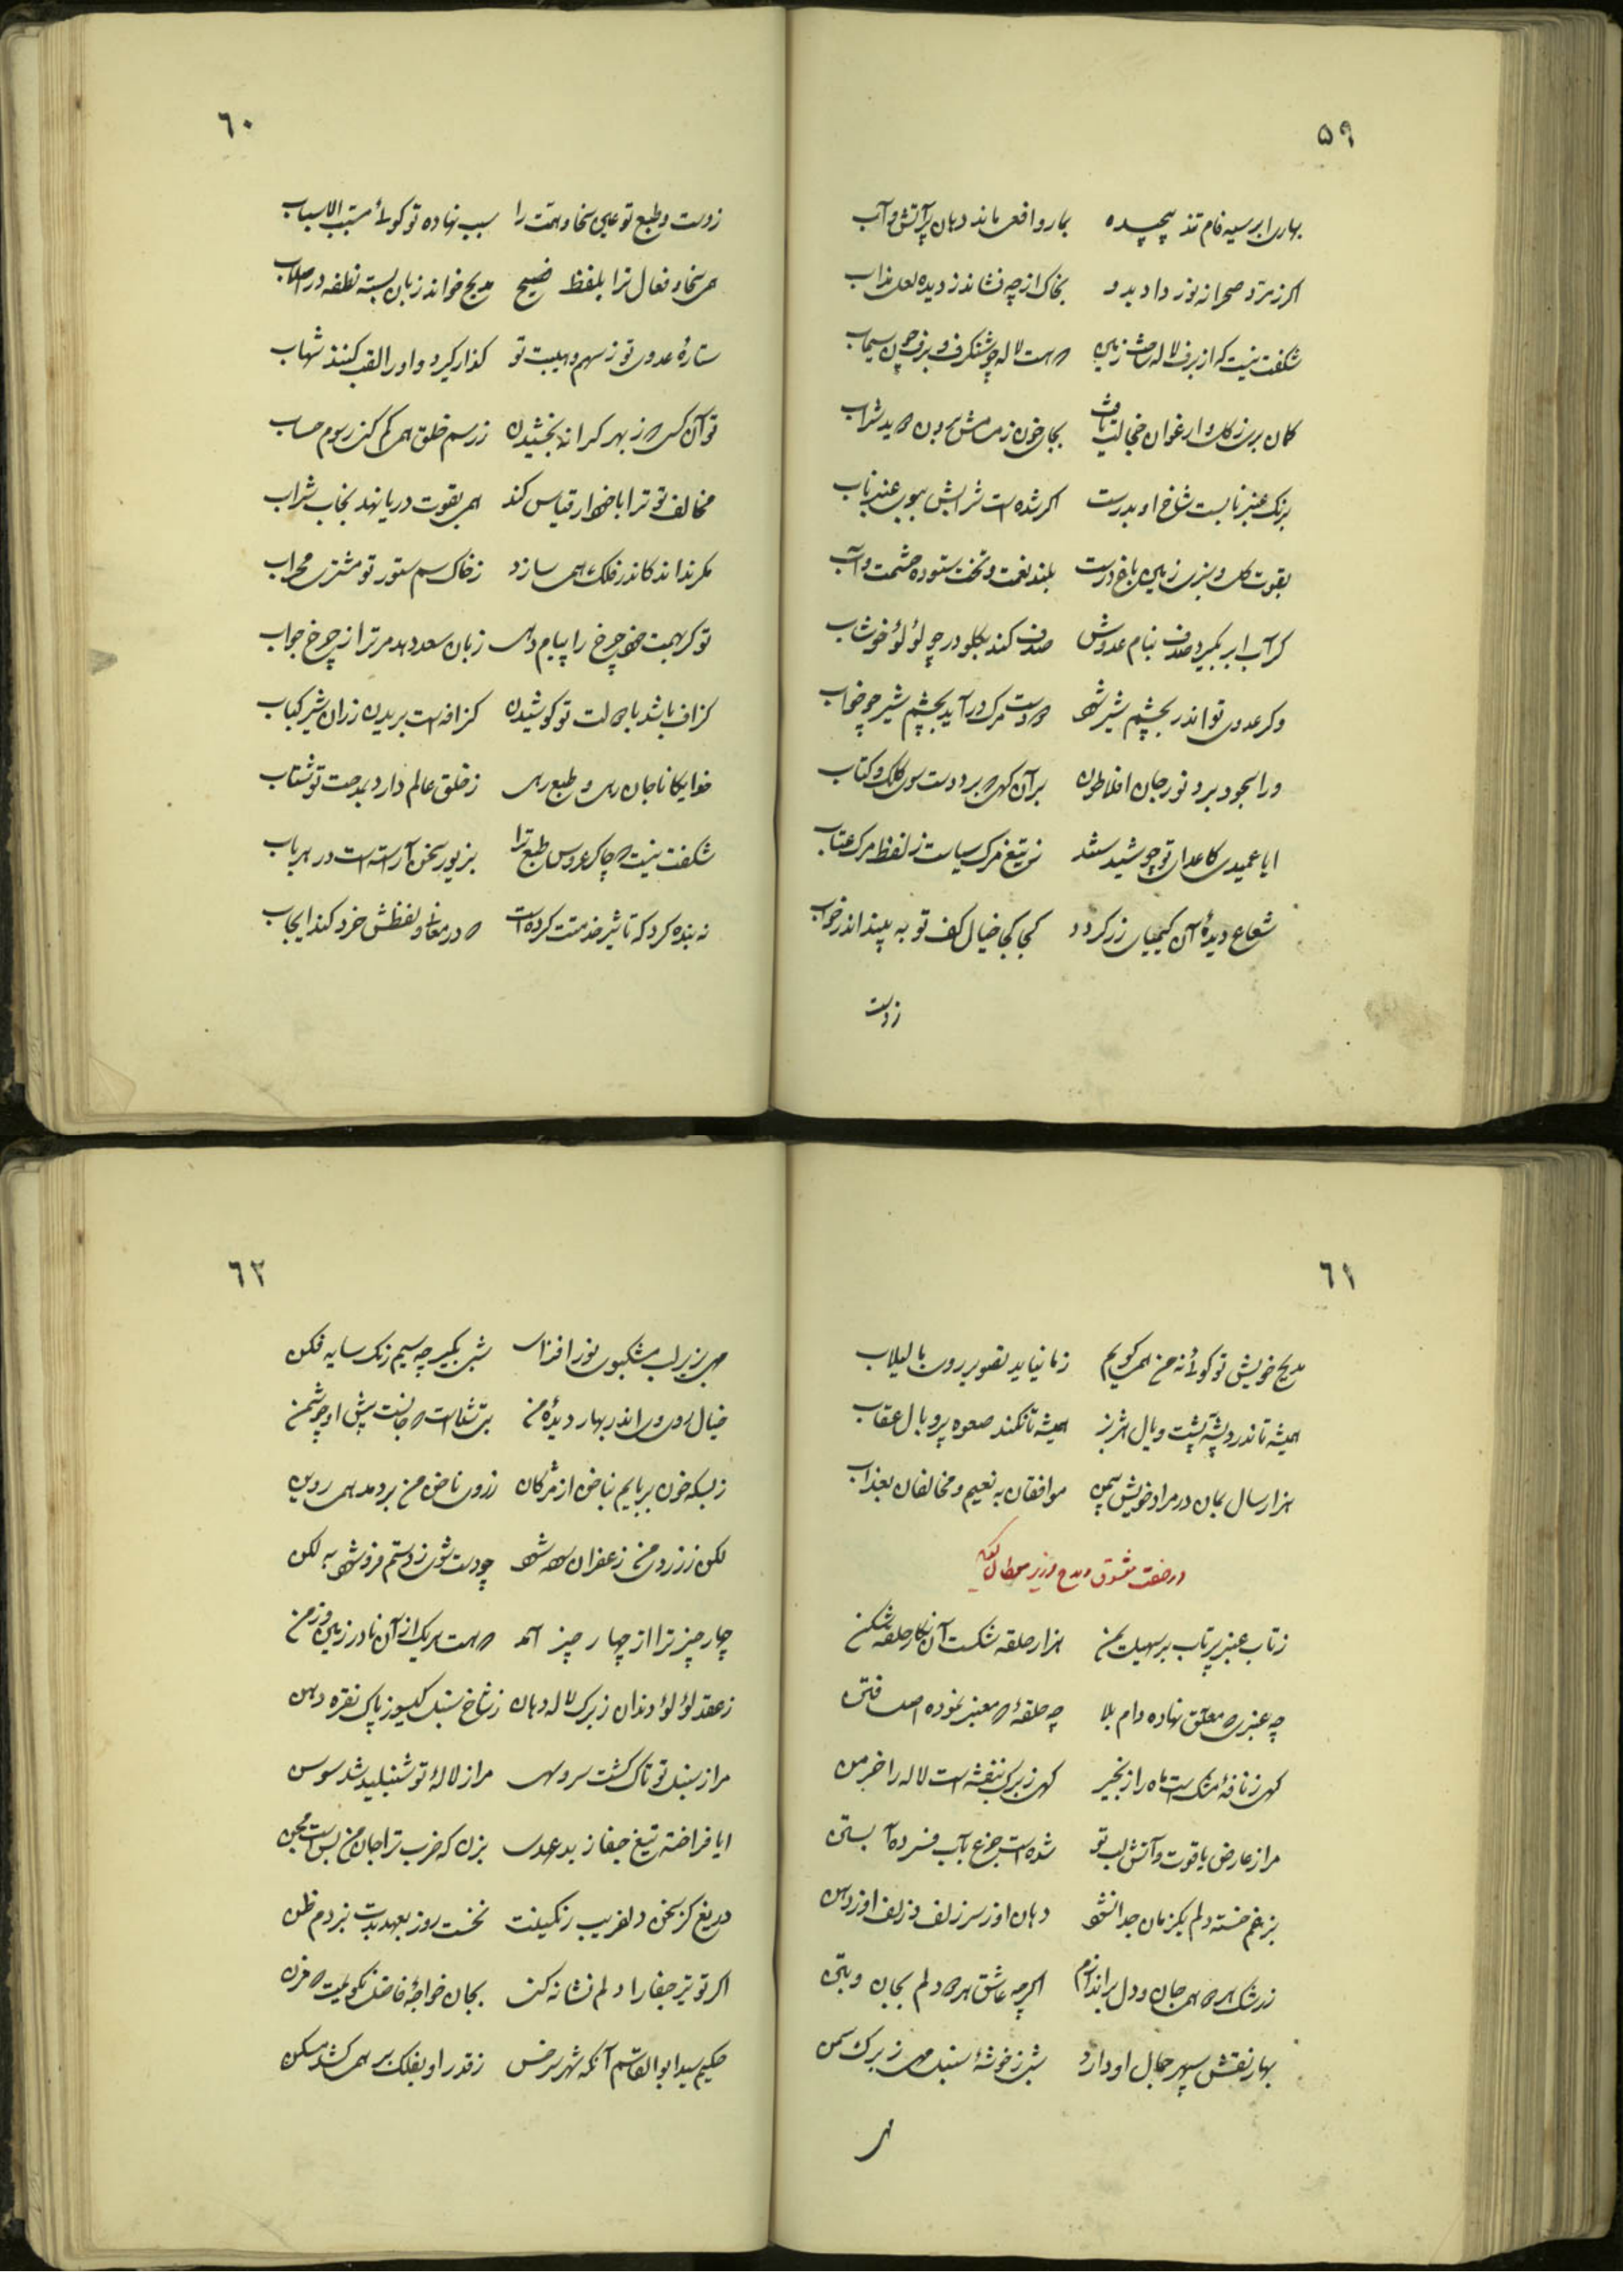 ٥٩
بهاری ابر سیه فام تند پیچیده بمار و افعی ماند دهان پر آتش و آب
اکر زمرد صحرا نه نور داد بدو بخاک از چه فشاند ز دیده لعل مذاب
شکفت نیست که از برف لاله ساخت زمین که هست لاله چو شنکرف و برف چون سیماب
کمان بری ز کل و ارغوان
برنک عنبر نابست شاخ او بدرست اکر شده است شرابش ببوی عنبر ناب
بقوت کل و سبزی زمین باغ درست بلند نعمت و تخت ستوده حشمت و آب
کر آب ابر بکیرد صدف بنام عدوش صدف کند بکلو در چو لؤلؤ خوشاب
وکر عدوی تو اندر بچشم شیر شود که دست مرک درآید بچشم شیر چو خواب
ورا سجود برد نور جان افلاطون بر آن کهی که برد دست سوی کلک و کتاب
ایا عمیدی کاعدای تو چو شید ستند ز تیغ مرک سیاست ز لفظ مرک عتاب
شعاع دیدهٔ آن کیمیای زر کردد کجا کجا خیال کف تو به بیند اندر خواب
ز دست
٦٠
ز دست و طبع تو علی سخا و همت را سبب نهاده تو کوئی مسبب الاسباب
همی سخا و فعال ترا بلفظ فصیح مدیح خواند زبان بسته نطفه در اصلاب
ستارهٔ عدوی تو ز سهم و هیبت تو کذار کیرد و او را لقب کنند شهاب
تو آن کسی که ز بهر کرانه بخشیدن ز رسم خلق همی کم کنی رسوم حساب
مخالف تو ترا با خود ار قیاس کند همی بقوت دریا نهد بخاب شراب
مکر نداند کاندر فلک همی سازد ز خاک سم ستور تو مشتری محراب
تو کر بهمت خود چرخ را پیام دهی زبان سعد دهد مر ترا ز چرخ جواب
کزاف باشد با دولت تو کوشیدن کزافه است بریدن ز ران شیر کباب
خدایکانا جان رهی و طبع رهی ز خلق عالم دارد بمدحت تو شتاب
شکفت نیست که چاکر عروس طبع ترا بزیور سخن آراسته است در هر باب
نه بنده کرد که تاثیر خدمتت کرده است که در معانی و لفظش خرد کند ایجاب
٦١
مدیح خویش تو کوئی نه من همی کویم ز ما نیاید تصویر روی با لبلاب
همیشه تا ندرد پشه پشت و یال هژبر همیشه تا نکند صعوه پر و بال عقاب
هزار سال بمان در مراد خویش بمن موافقان به نعیم و مخالفان بعذاب
در صفت معشوق و مدح وزیر
ز تاب عنبر پر تاب بر سهیل یمن هزار حلقه شکست آن نکار حلقه شکن
چه عنبری که معلق نهاده دام بلا چه حلقهٔ که معنبر نموده اصل فتن
کهی ز نافهٔ مشک است ماه را زنجیر کهی ز برک بنفشه است لاله را خرمن
مرا ز عارض یاقوت و آتش لب تو شده است جزع بآب فسرده آبستن
بزیر غم خسته دلم یکزمان جدا نشود دهان او ز سر زلف و زلف او ز دهن
ز رشک هر که همی جان و دل براندازم اکر چه عاشق هر که دلم بجان و بتن
بهار نقش سپهر جمال او دارد شبی ز خوشهٔ سنبل مهی ز برک سمن
مهی
٦٢
مهی بزیر لب مشکبوی نور افزای شبی بکیر چو سیم رنک سایه فکن
خیال روی ورا اندر بهار دیدهٔ من بتی شناست که جانست پیش او چو شمن
ز بسکه خون بربایم بناخن از مژکان ز روی ناخن من بردمد همی روین
لکن ز زردی من زعفران سوده شود چو دست شوی ز دستم فروشود به لکن
چهار چیز ترا از چهار چیز آمد که هست هر یک از آن نادر زمین و زمن
ز عقد لؤلؤ دندان ز برک لاله دهان ز شاخ سنبل کیسو ز پاک نقره دهن
مرا ز سنبل تو تاک کشت سرو سهی مرا ز لالهٔ تو شنبلید شد سوسن
ایا فراخته تیغ جفا ز بد عهدی بزن که ضرب ترا جان من بس است مجن
دریغ کز سخن دلفریب رنکینت نخست روز بعهد بدت نبردم ظن
اکر تو تیر جفا را دلم نشانه کنی بجان خواجهٔ فاضل نکویمت که مزن
حکیم سید ابوالقاسم آنکه شهر سرخس ز قدر او بفلک بر همی کشد مسکن